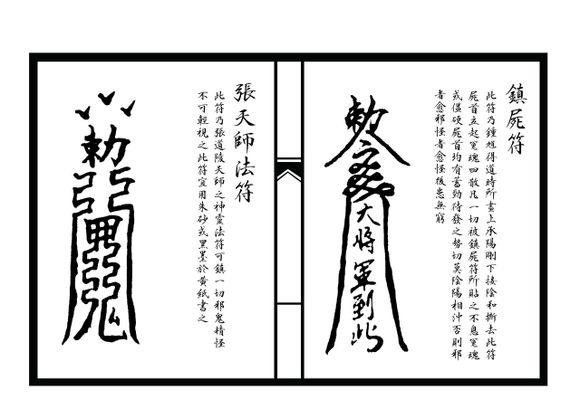 鎮屍符
此符乃鍾馗得道時所書上承陽剛下接陰和撕去此符
屍首立起冤魂四散凡一切被鎮屍符所貼之不息冤魂
或僵硬屍首均有蓄勁待發之勢切莫陰陽相沖否則邪
者愈邪怪者愈怪後患無窮
勅
大將軍到此
張天師法符
此符乃張道陵天師之神靈法符可鎮一切邪鬼精怪
不可輕視之此符宜用朱砂或黑墨於黃紙書之
勅